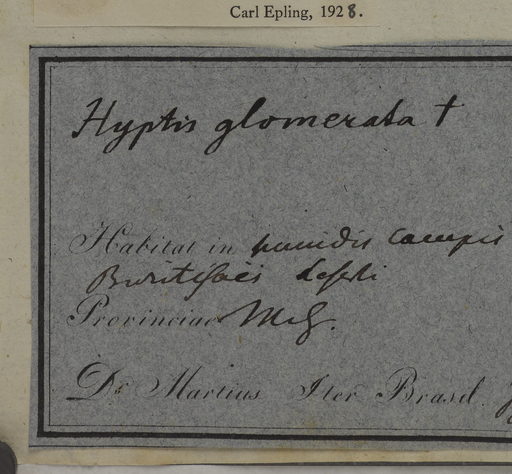 Carl Epling, 1928.
Hyptis glomerata †
Habitat in humidis campis
deserti
Provinciae M.G.
Dr Martius Iter Brasil.